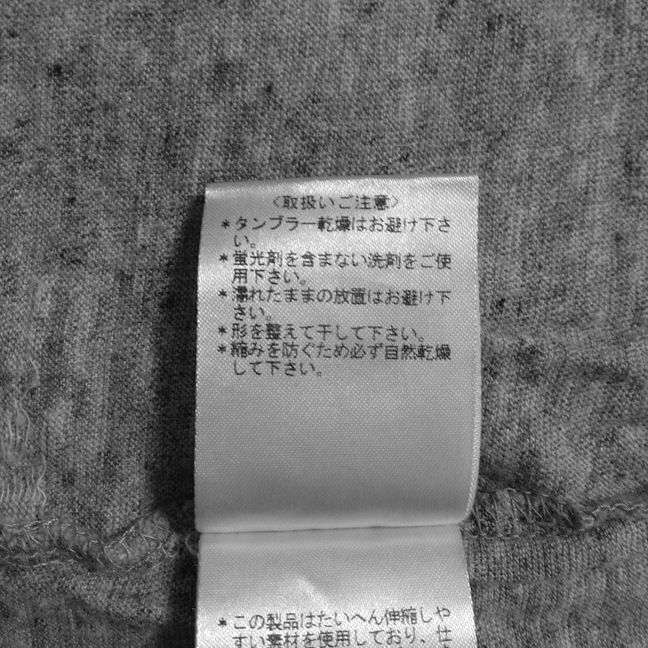 〈取扱いご注意〉
＊タンブラー乾燥はお避け下さ
い。
＊蛍光剤を含まない洗剤をご使
用下さい。
＊濡れたままの放置はお避け下
さい。
＊形を整えて干して下さい。
＊縮みを防ぐため必ず自然乾燥
して下さい。
＊この製品はたいへん伸縮しや
すい素材を使用しており、仕